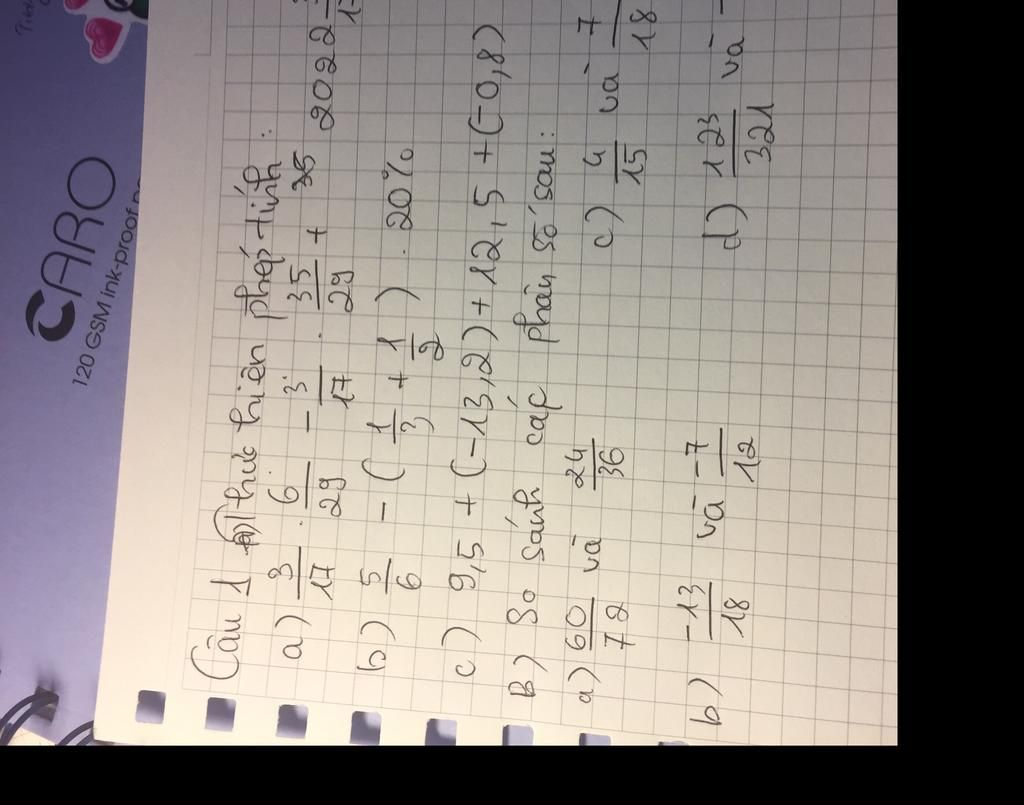 CARO
120 GSM Ink-proof
Câu 1 A) Thực hiện phép tính:
a) 3/17 . 6/29 - 3/17 . 35/29 + 2022
b) 5/6 - (1/3 + 1/2) . 20%
c) 9,5 + (-13,2) + 12,5 + (-0,8)
B) So sánh các phân số sau:
a) 60/72 và 24/36 c) 4/15 và 7/18
b) -13/18 và -7/12 d) 123/321 và